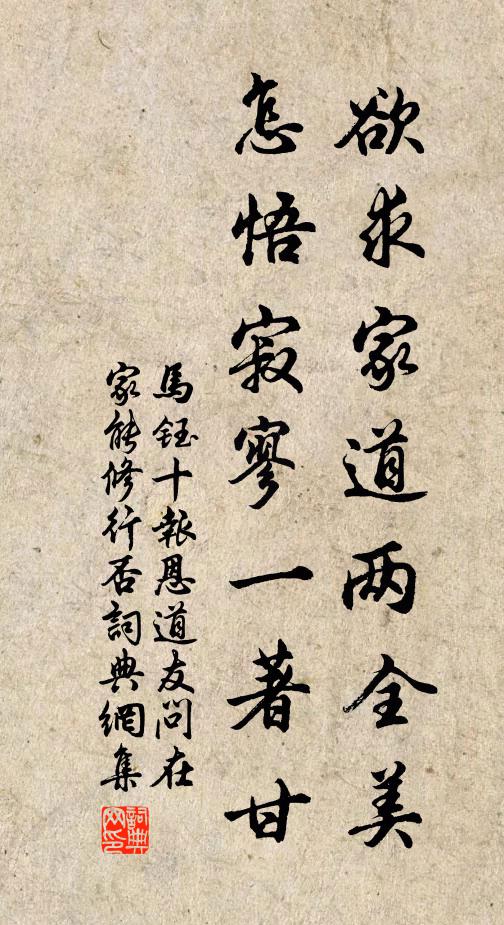 欲求家道两全美
怎悟寂寥一著甘
馬鈺十報恩道友問在
家能修行否詞典網集
詞典
网印